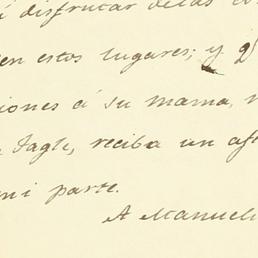 disfrutar de las
en estos lugares; y
iones á su mama,
Tagle, reciba un af
mi parte.
A Manuel